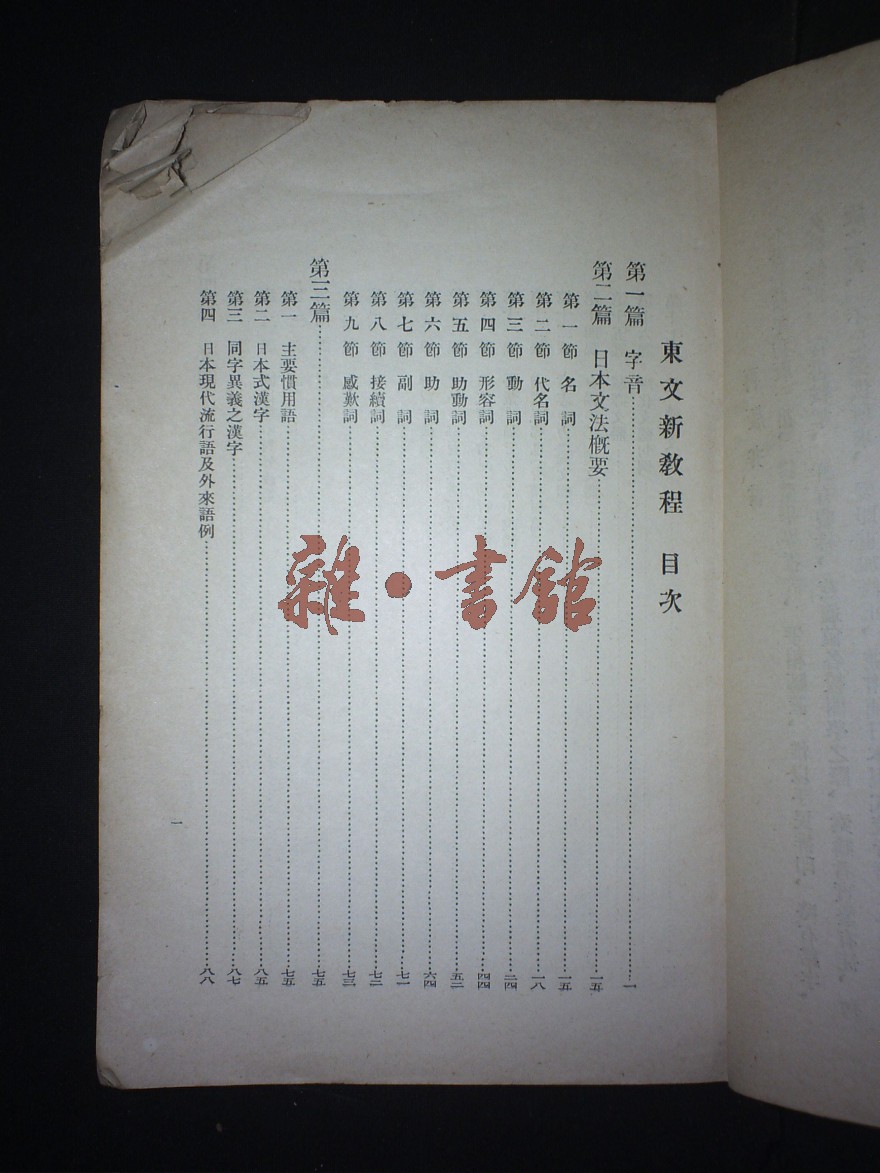 東文新教程 目次
第一篇 字音……一
第二篇 日本文法概要……一五
第一節 名詞……一五
第二節 代名詞……一八
第三節 動詞……二四
第四節 形容詞……四四
第五節 助動詞……五二
第六節 助詞……六四
第七節 副詞……七一
第八節 接續詞……七三
第九節 感歎詞……七三
第三篇……七五
第一 主要慣用語……七五
第二 日本式漢字……八五
第三 同字異義之漢字……八七
第四 日本現代流行語及外來語例……八八
一
雜·書館